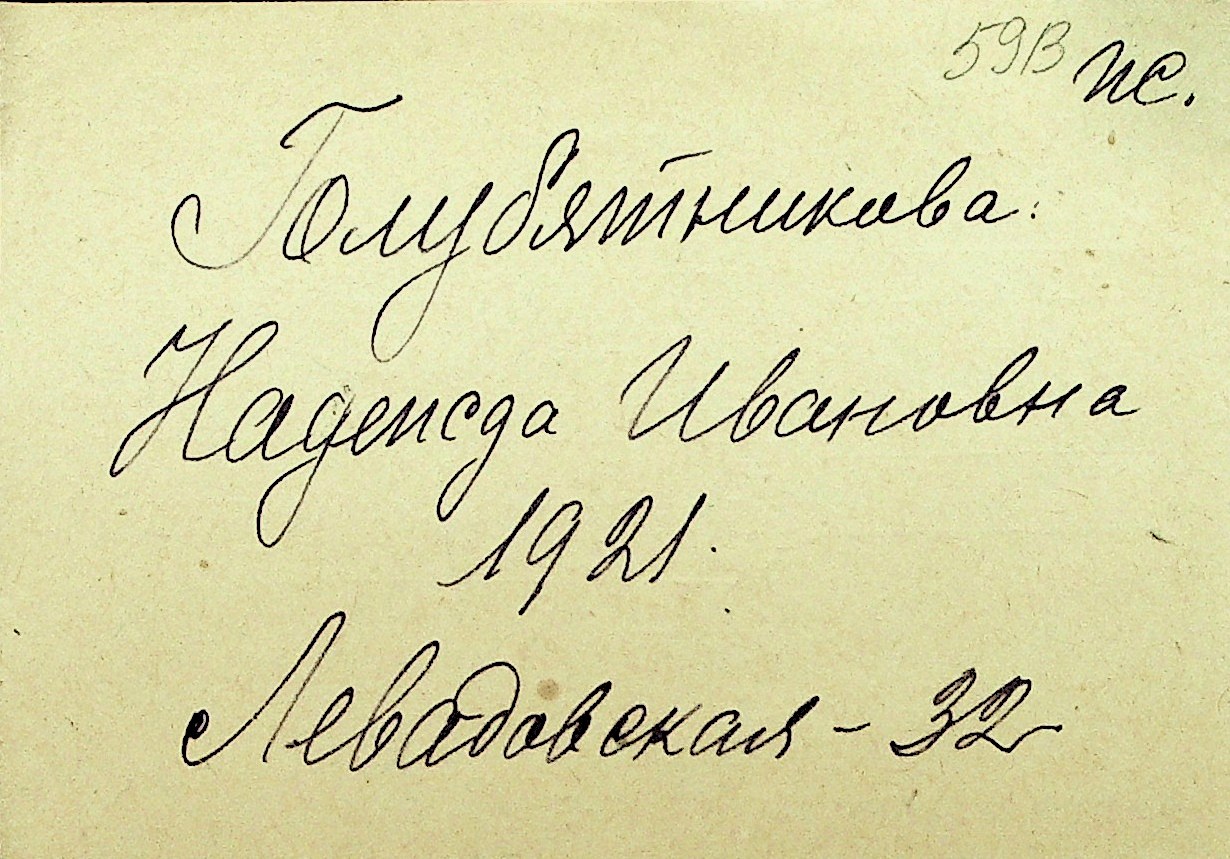 59В ис.
Голубятникова.
Надежда Ивановна
1921.
Левадовская - 32